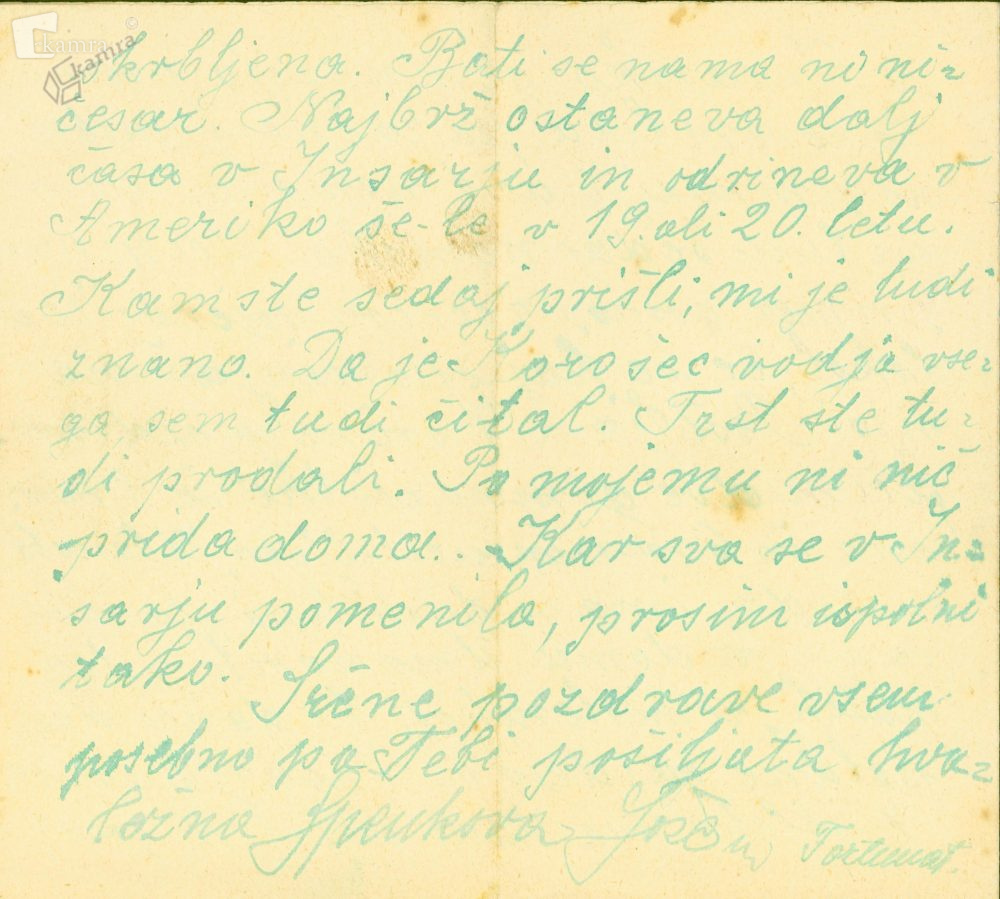 kamra
kamra
skrbljena. Bati se nama ni ni=
česar. Najbrž ostaneva dalj
časa v Insarju in odrineva v
Ameriko še-le v 19. ali 20. letu.
Kam ste sedaj prišli, mi je tudi
znano. Da je Korošec vodja vse=
ga, sem tudi čital. Trst ste tu=
di prodali. Po mojemu ni nič
prida doma. Kar sva se v In=
sarju pomenila, prosim ispolni
tako.
Srčne pozdrave vsem
posebno pa Tebi pošiljata hva=
ležna Jože in Fortunat.